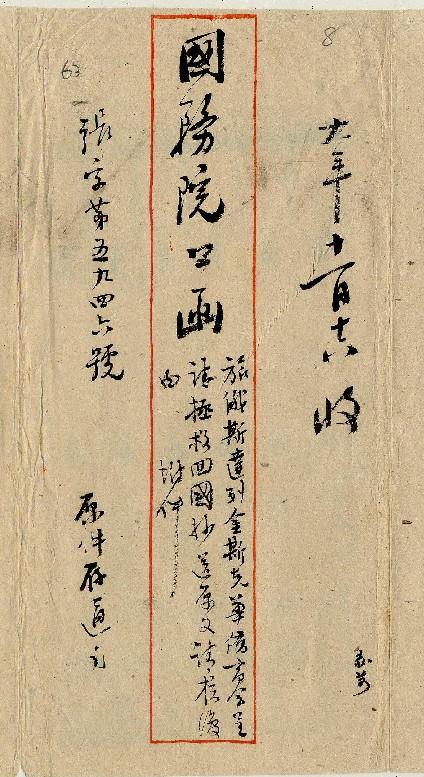 8
十一年十一月十六收
國務院公函
旅俄斯達列金斯克華僑商會呈
請拯救回國抄送原文請核復
由 附件
張字第五九四六號
原件存通商司
63